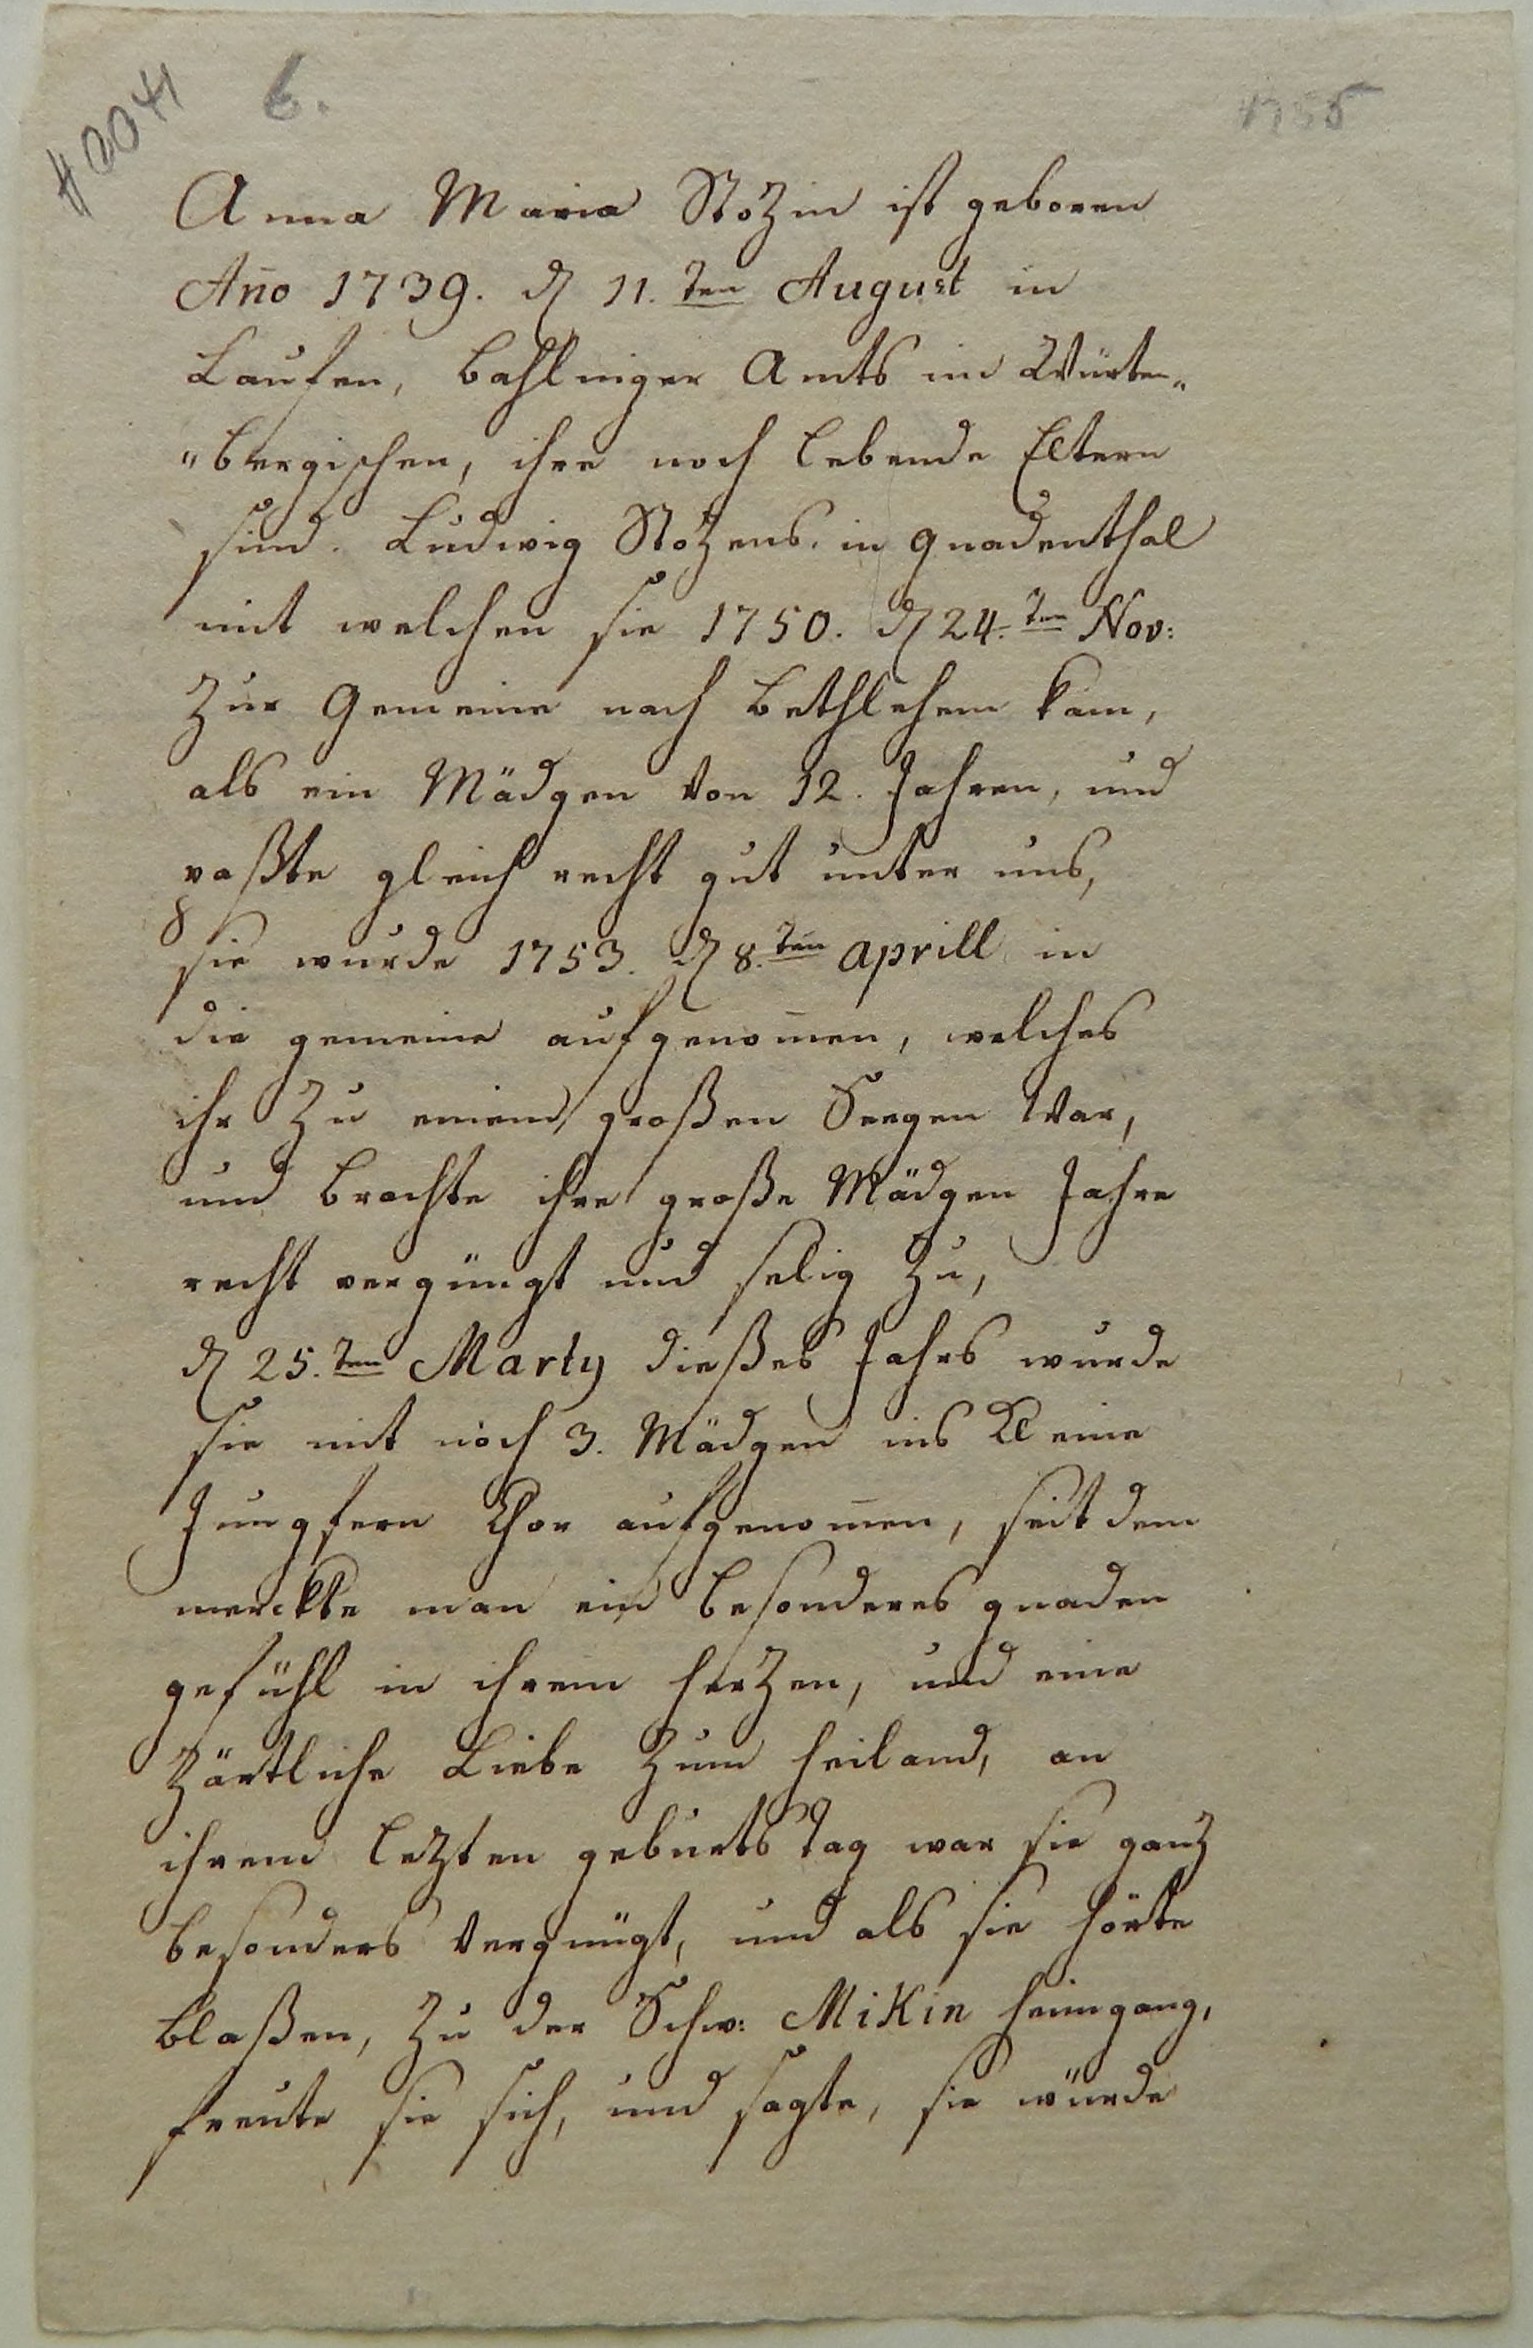 #0041
6.
1755
Anna Maria Stozin ist geboren
Año 1739. d 11.ten August in
Laufen, bahlinger Amts im Würten„
„bergischen, ihre noch lebende Eltern
sind. Ludwig Stozens. in gnadenthal
mit welchen sie 1750. d 24.ten Nov:
zur Gemeine nach bethlehem kam,
als ein Mädgen von 12. Jahren, und
paßte gleich recht gut unter uns,
sie wurde 1753. d 8.ten aprill in
die gemeine aufgenom̅en, welches
ihr zu einem großen Seegen war,
und brachte ihre große Mädgen Jahre
recht vergüngt und selig zu,
d 25.ten Marty dießes Jahrs wurde
sie mit noch 3. Mädgen ins Kleine
Jungfern Chor aufgenom̅en, seit dem
merckte man ein besonderes gnaden
gefühl in ihrem herzen, und eine
zärtliche Liebe zum heiland, an
ihrem lezten geburts tag war sie ganz
besonders vergnügt, und als sie hörte
blaßen, zu der Schw: MiKin heimgang,
freute sie sich, und sagte, sie würde